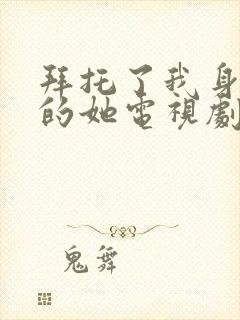 拜托了我身
的她電視劇
鬼舞